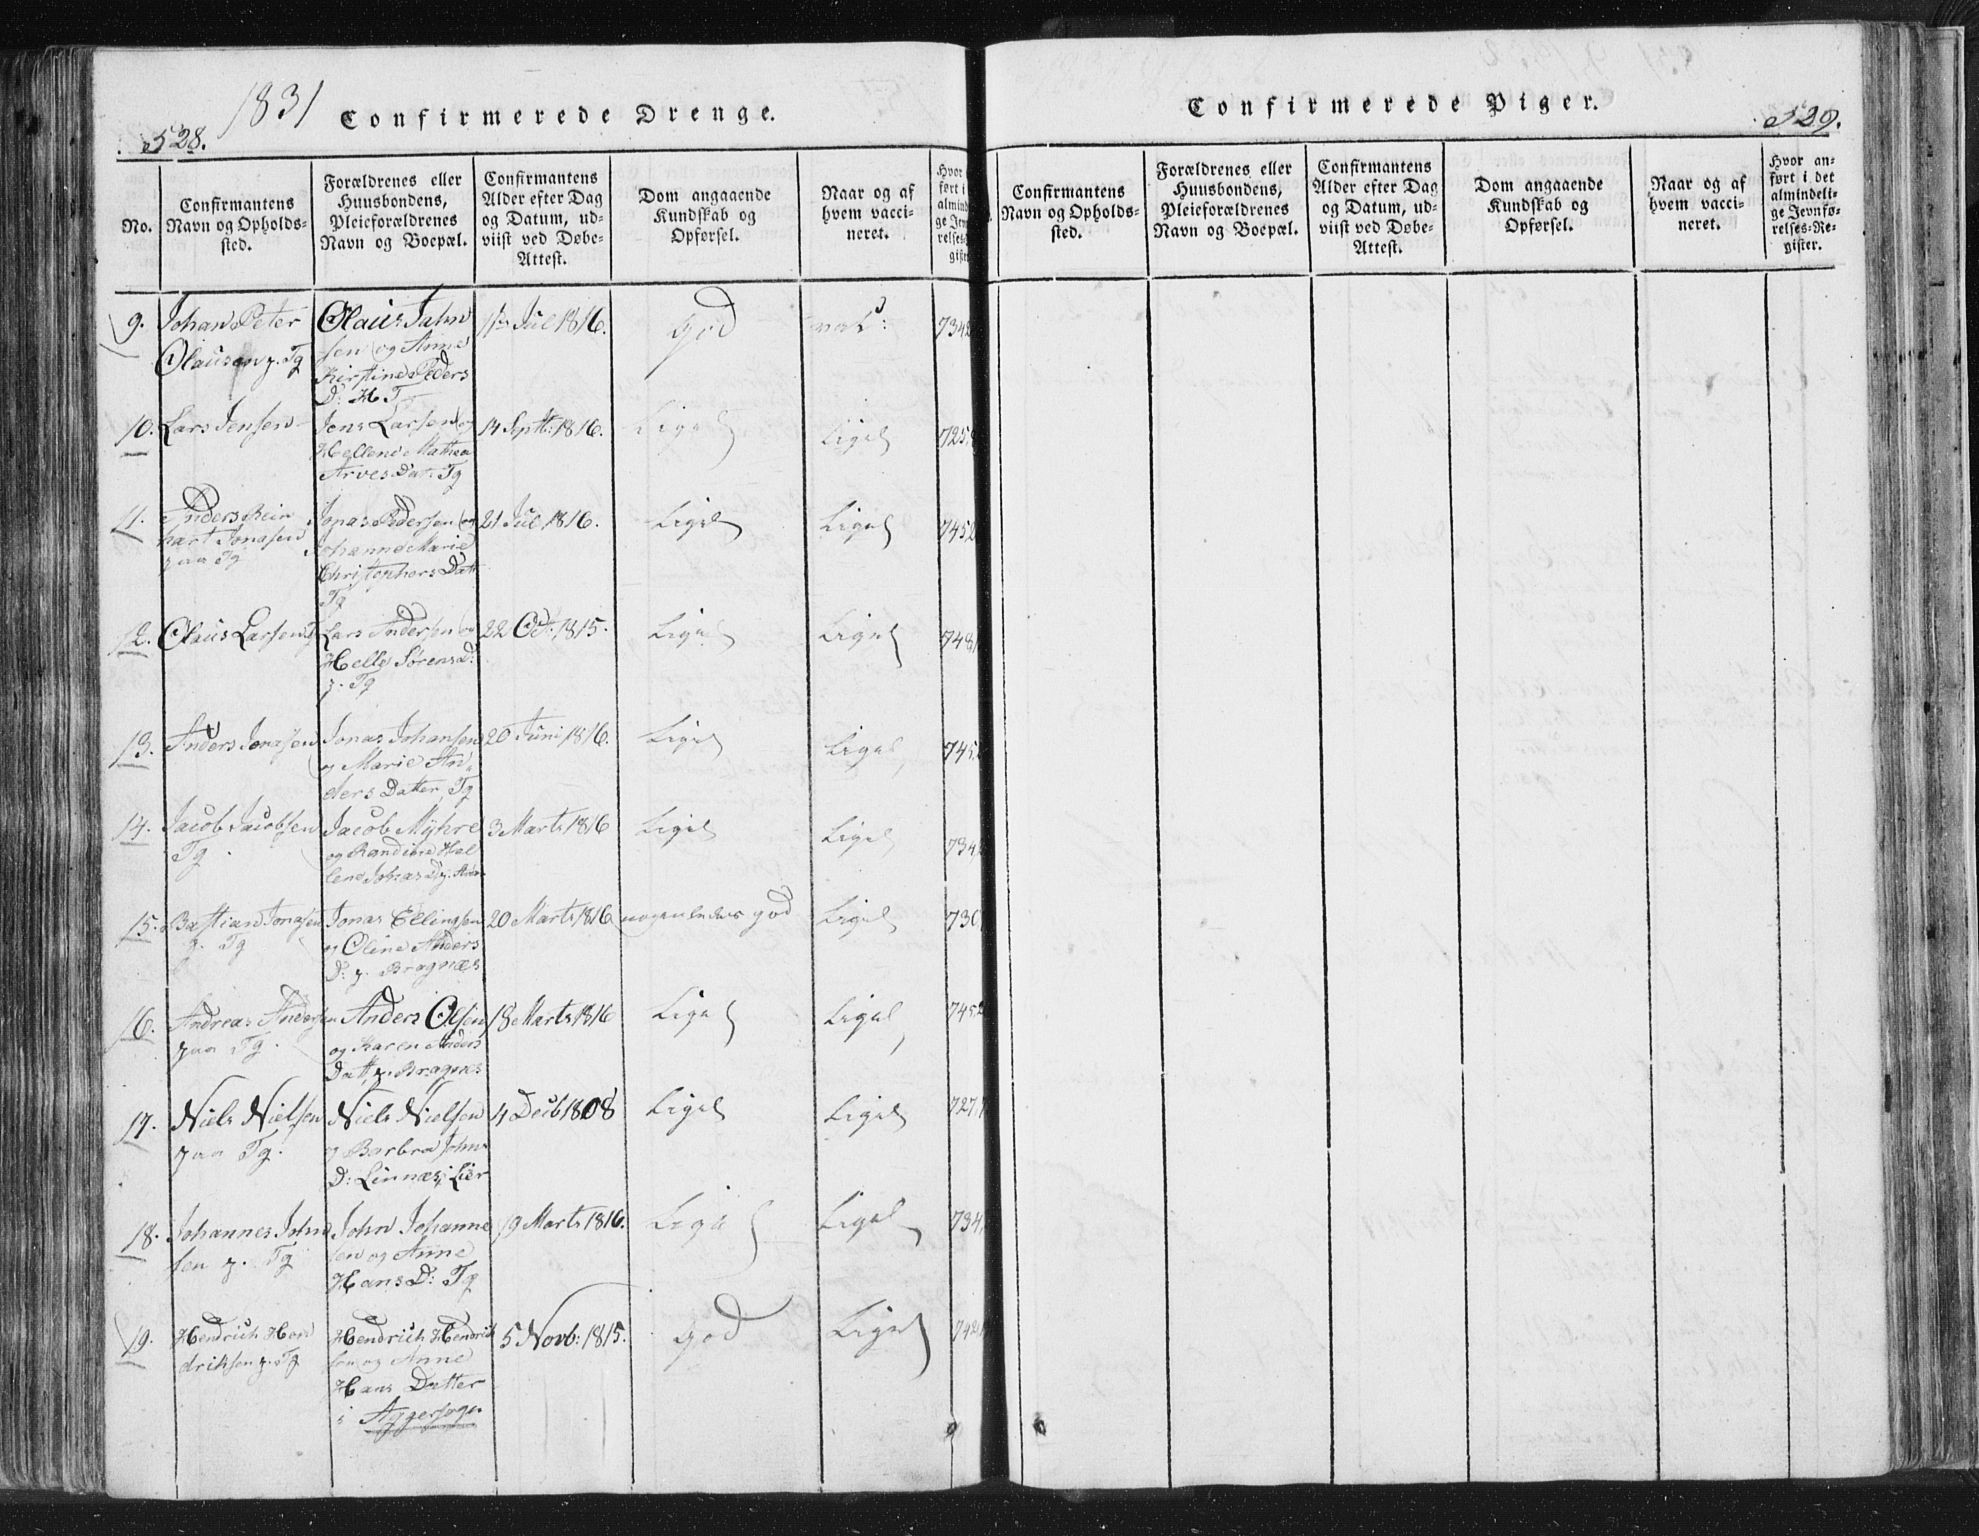 1831
Confirmerede Drenge.
528.
No.
Confirmantens
Navn og Opholds-
sted.
Forældrenes eller
Huusbondens,
Pleieforældrenes
Navn og Boepæl.
Confirmantens
Alder efter Dag
og Datum, ud-
viist ved Døbe-
Attest.
Dom angaaende
Kundskab og
Opførsel.
Naar og af
hvem vacci-
neret.
9.
Johan Peter
Olausen p. Tg
Olaus John
sen og Anne
Kirstine Peders
D: H T
Jul 1816.
god
vac:
734
10.
Lars Jensen
Jens Larsen og
Hellene Mathea
Arves Dat: Tg
14 Septb: 1816.
Ligel
Ligel
725
11.
Anders Rein
hart Jonasen
paa Tg
Jonas Pedersen og
Johanne Marie
Christophers Datt
Tg
21 Jul 1816.
Ligel
Ligel
745
12.
Olaus Larsen
Lars Andersen og
Helle Sørens D:
p. Tg
22 Oct: 1815.
Ligel
Ligel
748
13.
Anders Jonasen
Jonas Johansen
og Marie An
ders Datter, Tg
20 Juni 1816.
Ligel
Ligel
745
14.
Jacob Jacobsen
Tg
Jacob Myhre
og Randine Hel
lene Johns D p.
3 Marts 1816
Ligel
Ligel
734
15.
Bastian Jonasen
p. Tg
Jonas Ellingsen
og Oline Anders
D: p. Bragnæs
20 Marts 1816
nogenledes god
Ligel
730
16.
Andreas Andersen
paa Tg.
Anders Olsen
og Karen Anders
Datt, p. Bragnes
18 Marts 1816
Ligel
Ligel
745
17.
Niels Nielsen
paa Tg.
Niels Nielsen
og Barbra John
D: Linnæs i Lier
4 Decb 1808
Ligel
Ligel
727
18.
Johannes John
sen p. Tg
John Johanne
sen og Anne
Hans D: Tg
19 Marts 1816.
Ligel
Ligel
734
19.
Hendrich Hen
driksen p. Tg
Hendrich Hendrich
sen og Anne
Hans Datter
i Aggersogn
5 Novb: 1815.
god
Ligel
742
Confirmerede Piger.
529.
Confirmantens
Navn og Opholds-
sted.
Forældrenes eller
Huusbondens,
Pleieforældrenes
Navn og Boepæl.
Confirmantens
Alder efter Dag
og Datum, ud-
viist ved Døbe-
Attest.
Dom angaaende
Kundskab og
Opførsel.
Naar og af
hvem vacci-
neret.
Hvor an-
ført i det
almindeli-
ge Jevnfø-
relses-Re-
gister.